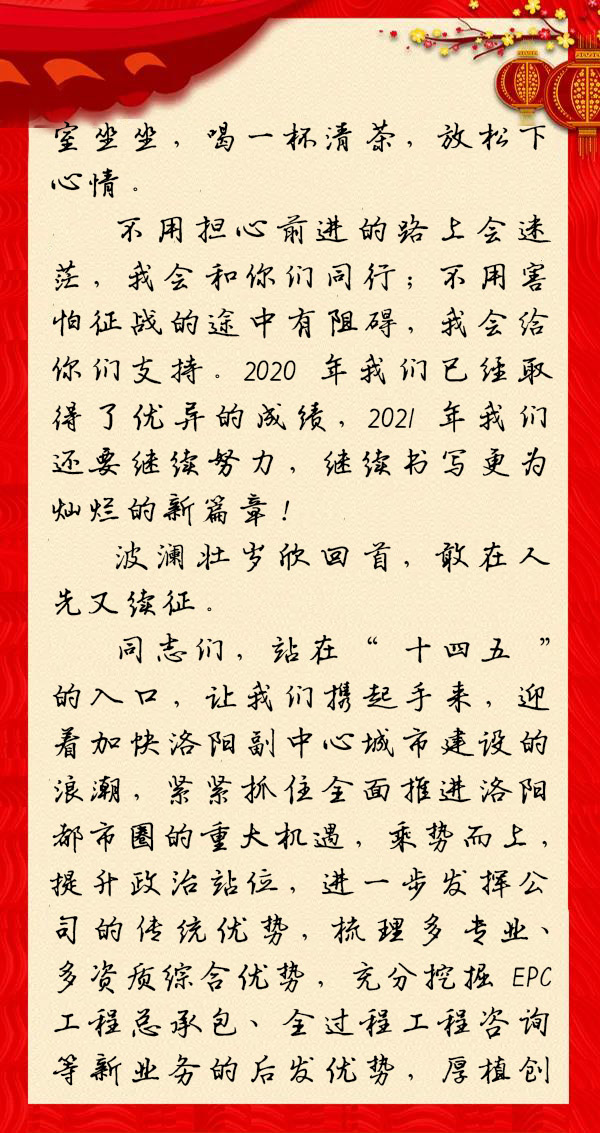 室坐坐，喝一杯清茶，放松下
心情。
不用担心前进的路上会迷
茫，我会和你们同行；不用害
怕征战的途中有阻碍，我会给
你们支持。2020 年我们已经取
得了优异的成绩，2021 年我们
还要继续努力，继续书写更为
灿烂的新篇章！
波澜壮岁欣回首，敢在人
先又续征。
同志们，站在“十四五”
的入口，让我们携起手来，迎
着加快洛阳副中心城市建设的
浪潮，紧紧抓住全面推进洛阳
都市圈的重大机遇，乘势而上，
提升政治站位，进一步发挥公
司的传统优势，梳理多专业、
多资质综合优势，充分挖掘 EPC
工程总承包、全过程工程咨询
等新业务的后发优势，厚植创